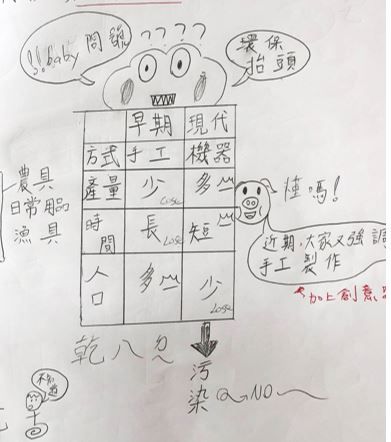 ????
!!baby 問號
環保
抬頭
早期 現代
方式 手工 機器
產量 少 Lose 多
時間 長 Lose 短
人口 多 少 Lose
農具
日常用品
漁具
懂嗎!
近期,大家又強調
手工製作
加上創意
乾八ㄉ
污染 NO
不知道